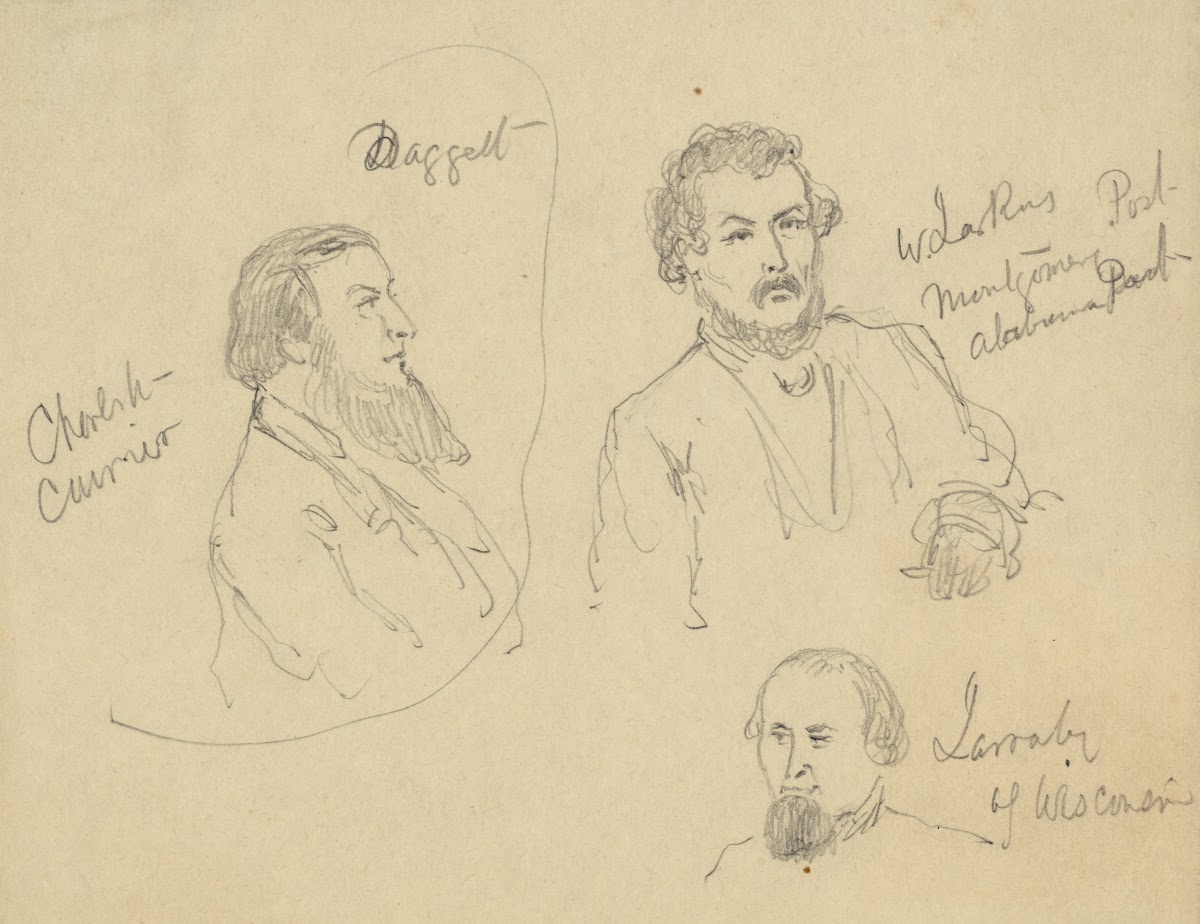 Daggett
Charlest-
Currier
W. Larkins Post-
Montgomery Post-
alabama
Larraby
of Wisconsin